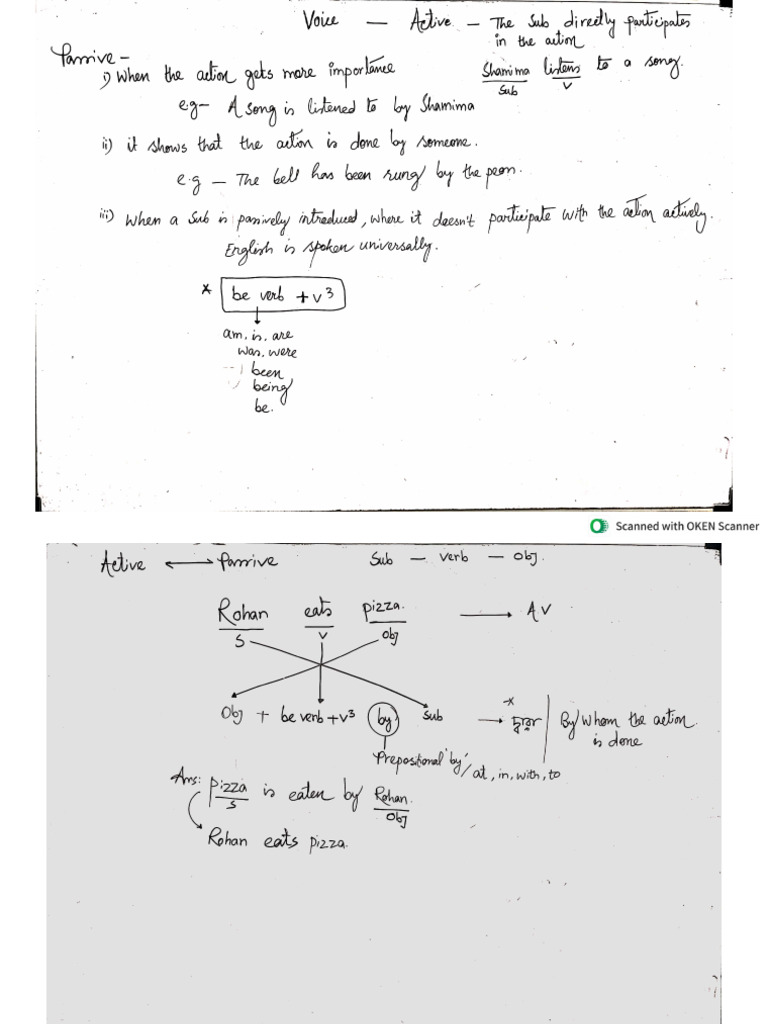 Voice — Active — The Sub directly participates
in the action
Passive –
i) When the action gets more importance
Shamima listens to a song.
Sub V
e.g – A song is listened to by Shamima
ii) it shows that the action is done by someone.
e.g – The bell has been rung by the peon.
iii) When a Sub is passively introduced, where it doesn't participate with the action actively.
English is spoken universally.
* be verb + v3
am, is, are
was, were
been
being
be.
Scanned with OKEN Scanner
Active ⟷ Passive Sub – verb – obj.
Rohan eats pizza. → AV
S V Obj
Obj + be verb + v3 by Sub → By whom the action
is done
Prepositional 'by' / at, in, with, to
Ans: Pizza is eaten by Rohan.
S Obj
Rohan eats pizza.